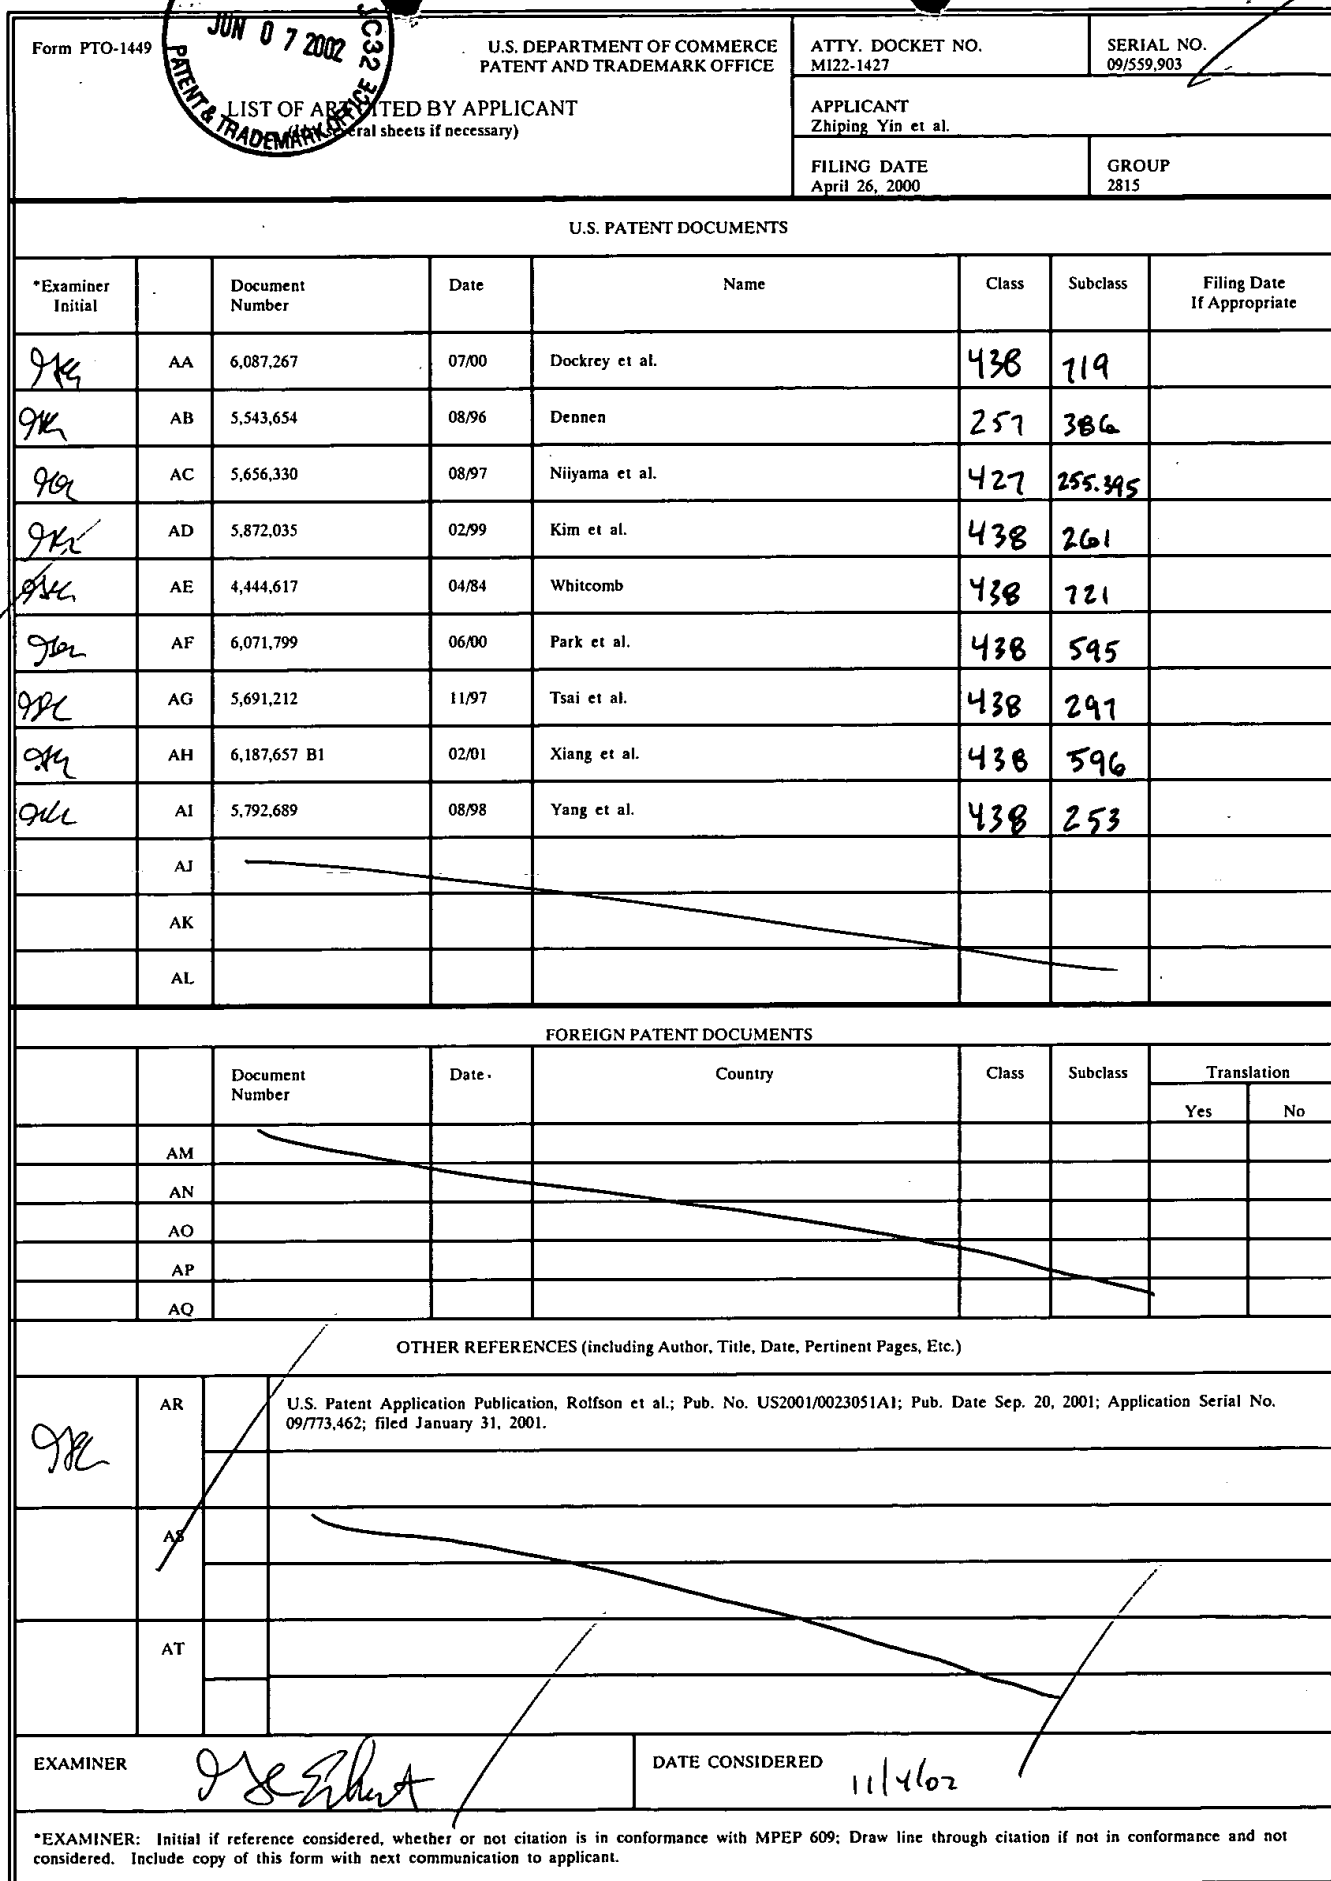 JUN 0 7 2002
JC32
PATENT & TRADEMARK OFFICE
Form PTO-1449
U.S. DEPARTMENT OF COMMERCE
PATENT AND TRADEMARK OFFICE
ATTY. DOCKET NO.
MI22-1427
SERIAL NO.
09/559,903
LIST OF ART CITED BY APPLICANT
several sheets if necessary)
APPLICANT
Zhiping Yin et al.
FILING DATE
April 26, 2000
GROUP
2815
U.S. PATENT DOCUMENTS
*Examiner Initial Document Number Date Name Class Subclass Filing Date If Appropriate
AA 6,087,267 07/00 Dockrey et al. 438 719
AB 5,543,654 08/96 Dennen 257 386
AC 5,656,330 08/97 Niiyama et al. 427 255.395
AD 5,872,035 02/99 Kim et al. 438 261
AE 4,444,617 04/84 Whitcomb 438 721
AF 6,071,799 06/00 Park et al. 438 595
AG 5,691,212 11/97 Tsai et al. 438 297
AH 6,187,657 B1 02/01 Xiang et al. 438 596
AI 5,792,689 08/98 Yang et al. 438 253
AJ
AK
AL
FOREIGN PATENT DOCUMENTS
Document Number Date Country Class Subclass Translation
Yes No
AM
AN
AO
AP
AQ
OTHER REFERENCES (including Author, Title, Date, Pertinent Pages, Etc.)
AR U.S. Patent Application Publication, Rolfson et al.; Pub. No. US2001/0023051A1; Pub. Date Sep. 20, 2001; Application Serial No.
09/773,462; filed January 31, 2001.
AS
AT
EXAMINER
DATE CONSIDERED 11/4/02
*EXAMINER: Initial if reference considered, whether or not citation is in conformance with MPEP 609; Draw line through citation if not in conformance and not
considered. Include copy of this form with next communication to applicant.